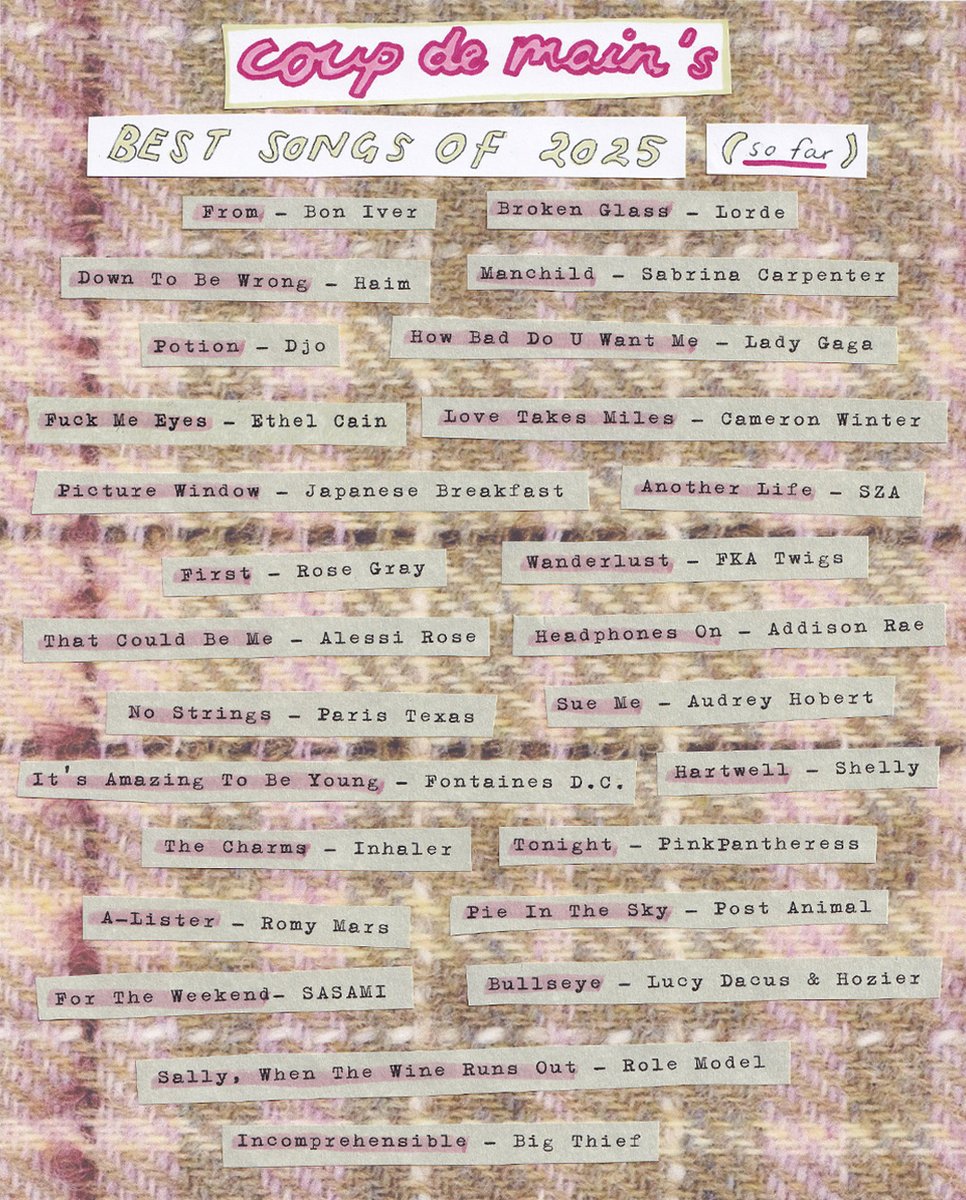 coup de main's
BEST SONGS OF 2025 (so far)
From - Bon Iver
Broken Glass - Lorde
Down To Be Wrong - Haim
Manchild - Sabrina Carpenter
Potion - Djo
How Bad Do U Want Me - Lady Gaga
Fuck Me Eyes - Ethel Cain
Love Takes Miles - Cameron Winter
Picture Window - Japanese Breakfast
Another Life - SZA
First - Rose Gray
Wanderlust - FKA Twigs
That Could Be Me - Alessi Rose
Headphones On - Addison Rae
No Strings - Paris Texas
Sue Me - Audrey Hobert
It's Amazing To Be Young - Fontaines D.C.
Hartwell - Shelly
The Charms - Inhaler
Tonight - PinkPantheress
A-Lister - Romy Mars
Pie In The Sky - Post Animal
For The Weekend- SASAMI
Bullseye - Lucy Dacus & Hozier
Sally, When The Wine Runs Out - Role Model
Incomprehensible - Big Thief